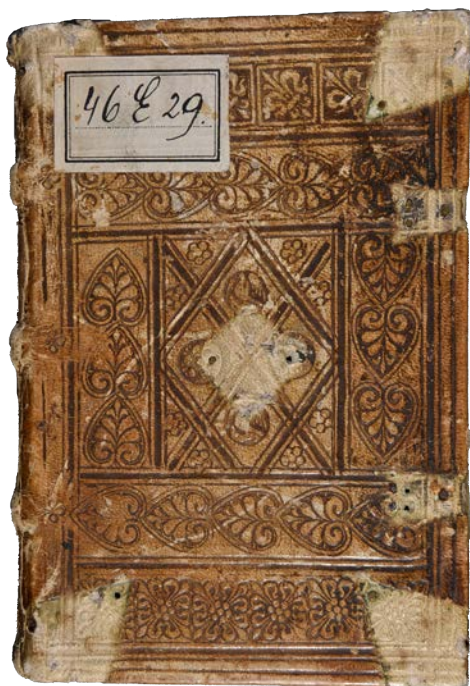 46 E 29.